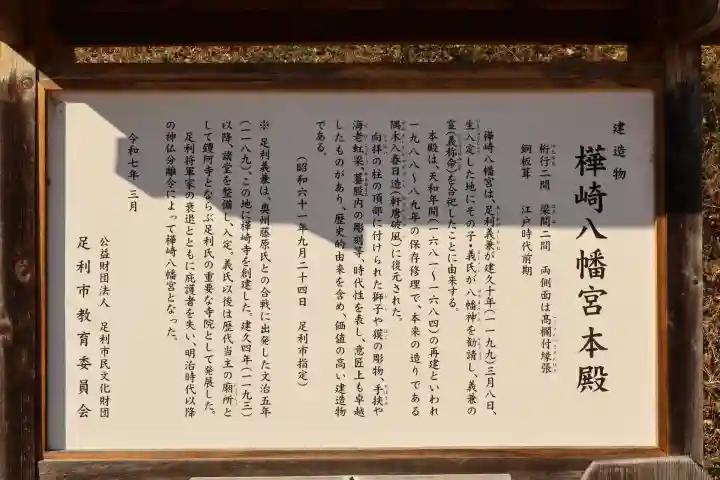 建造物
樺崎八幡宮本殿
桁行二間　梁間二間　両側面は高欄付縁張
銅板葺　江戸時代前期
樺崎八幡宮は、足利義兼が建久十年(一一九九)三月八日、
生入定した地にその子・義氏が八幡神を勧請し、義兼の
霊(義称命)を合祀したことに由来する。
本殿は、天和年間(一六八一〜一六八四)の再建といわれ
一九八八〜八九年の保存修理で、本来の造りである
隅木入春日造(軒唐破風)に復元された。
向拝の柱の頂部に付けられた獅子や獏の彫物、手挟や
海老虹梁、蟇股内の彫刻等、時代性を表し、意匠上も卓越
したものがあり、歴史的由来を含め、価値の高い建造物
である。
(昭和六十一年九月二十四日　足利市指定)
※ 足利義兼は、奥州藤原氏との合戦に出発した文治五年
(一一八九)、この地に樺崎寺を創建した。建久四年(一一九三)
以降、諸堂を整備し、入定。義氏以後は歴代当主の廟所と
して鑁阿寺とならぶ足利氏の重要な寺院として発展した。
足利将軍家の衰退とともに庇護者を失い、明治時代以降
の神仏分離令によって樺崎八幡宮となった。
令和七年 三月
公益財団法人　足利市民文化財団
足利市教育委員会